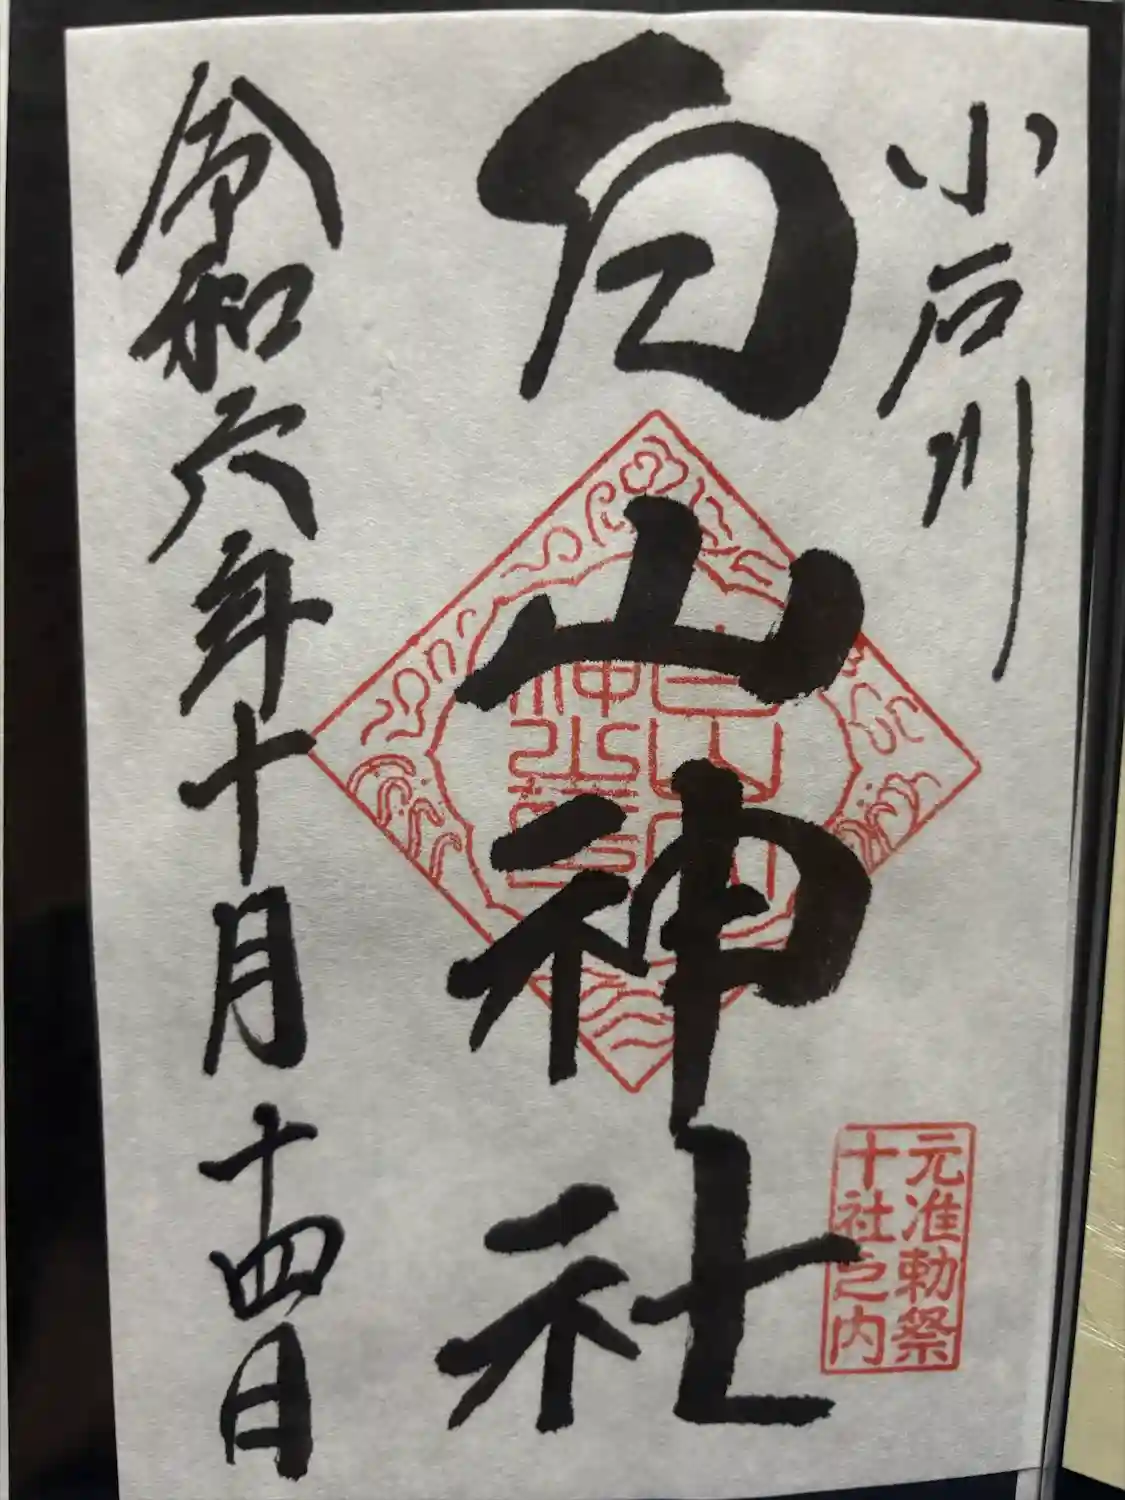 小石川
白山神社
元准勅祭
十社之内
令和六年十月十四日